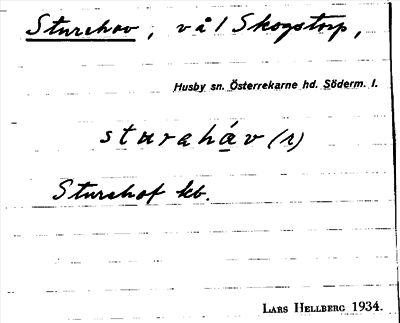 Sturehov, vål Skogstorp,
Husby sn. Österrekarne hd. Söderm. l.
sturahá̱v (1)
Sturehof kb.
LARS HELLBERG 1934.